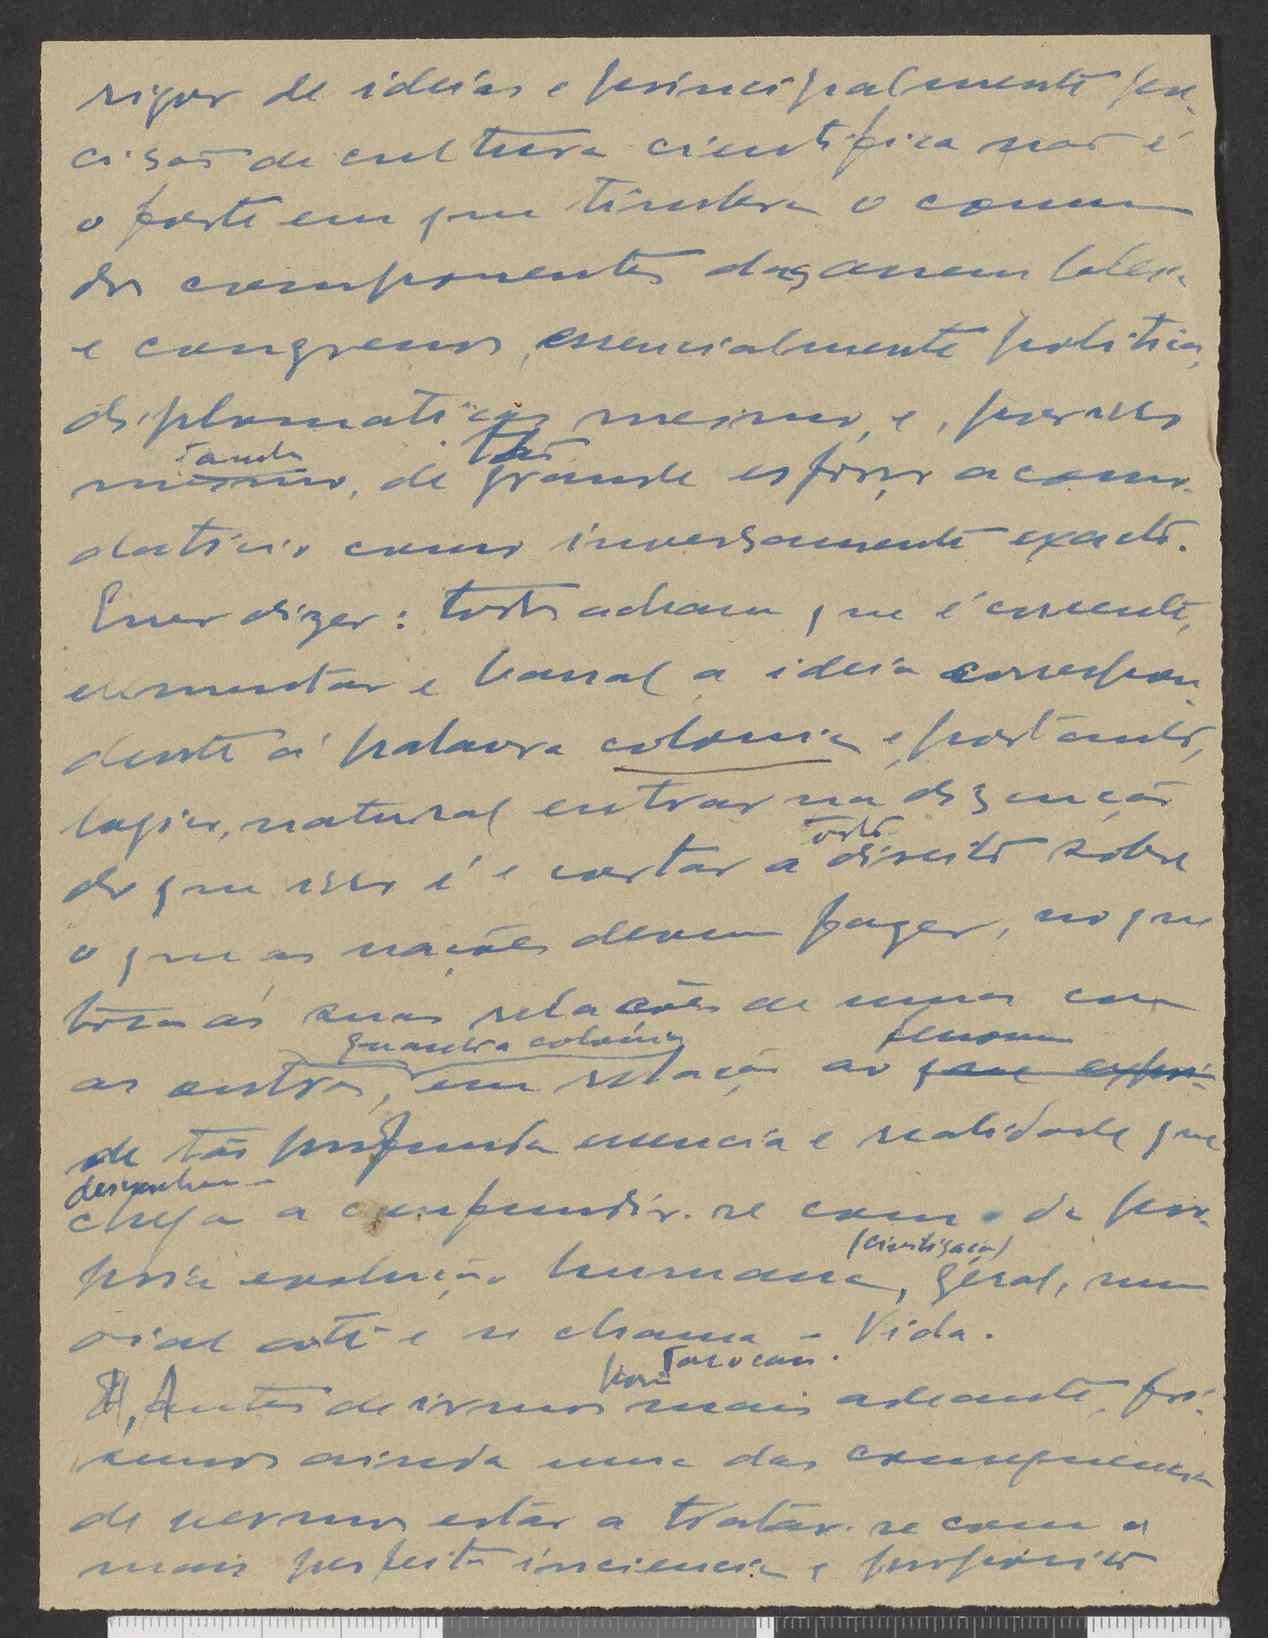 rigor de ideias e principalmente pre-
cisão de cultura cientifica não é
o forte em que timbra o comum
dos componentes das assembleias
e congressos, essencialmente politicos,
diplomaticos mesmo, e, por isso
tanto tão
mesmo, de grande esforço acomo-
daticio como inversamente exacto.
Quer dizer: todos acham que é corrente,
elementar e banal a ideia correspon-
dente á palavra colonia e, portanto,
logico, natural entrar na
do que isso é e cortar a direito sobre
todo
o que as nações devem fazer, no que
toca ás suas relações de umas com
colonia
as outras, em relação ao que expri-
de tão profunda essencia e realidade que
chega a confundir-se com da pro-
(civilisação)
pria evolução humana, geral, mun-
dial até e se chama - Vida.
por
Antes de irmos mais adeante, fri-
semos ainda uma das consequencias
de vermos estar a tratar-se com a
mais perfeita insciencia e proposito